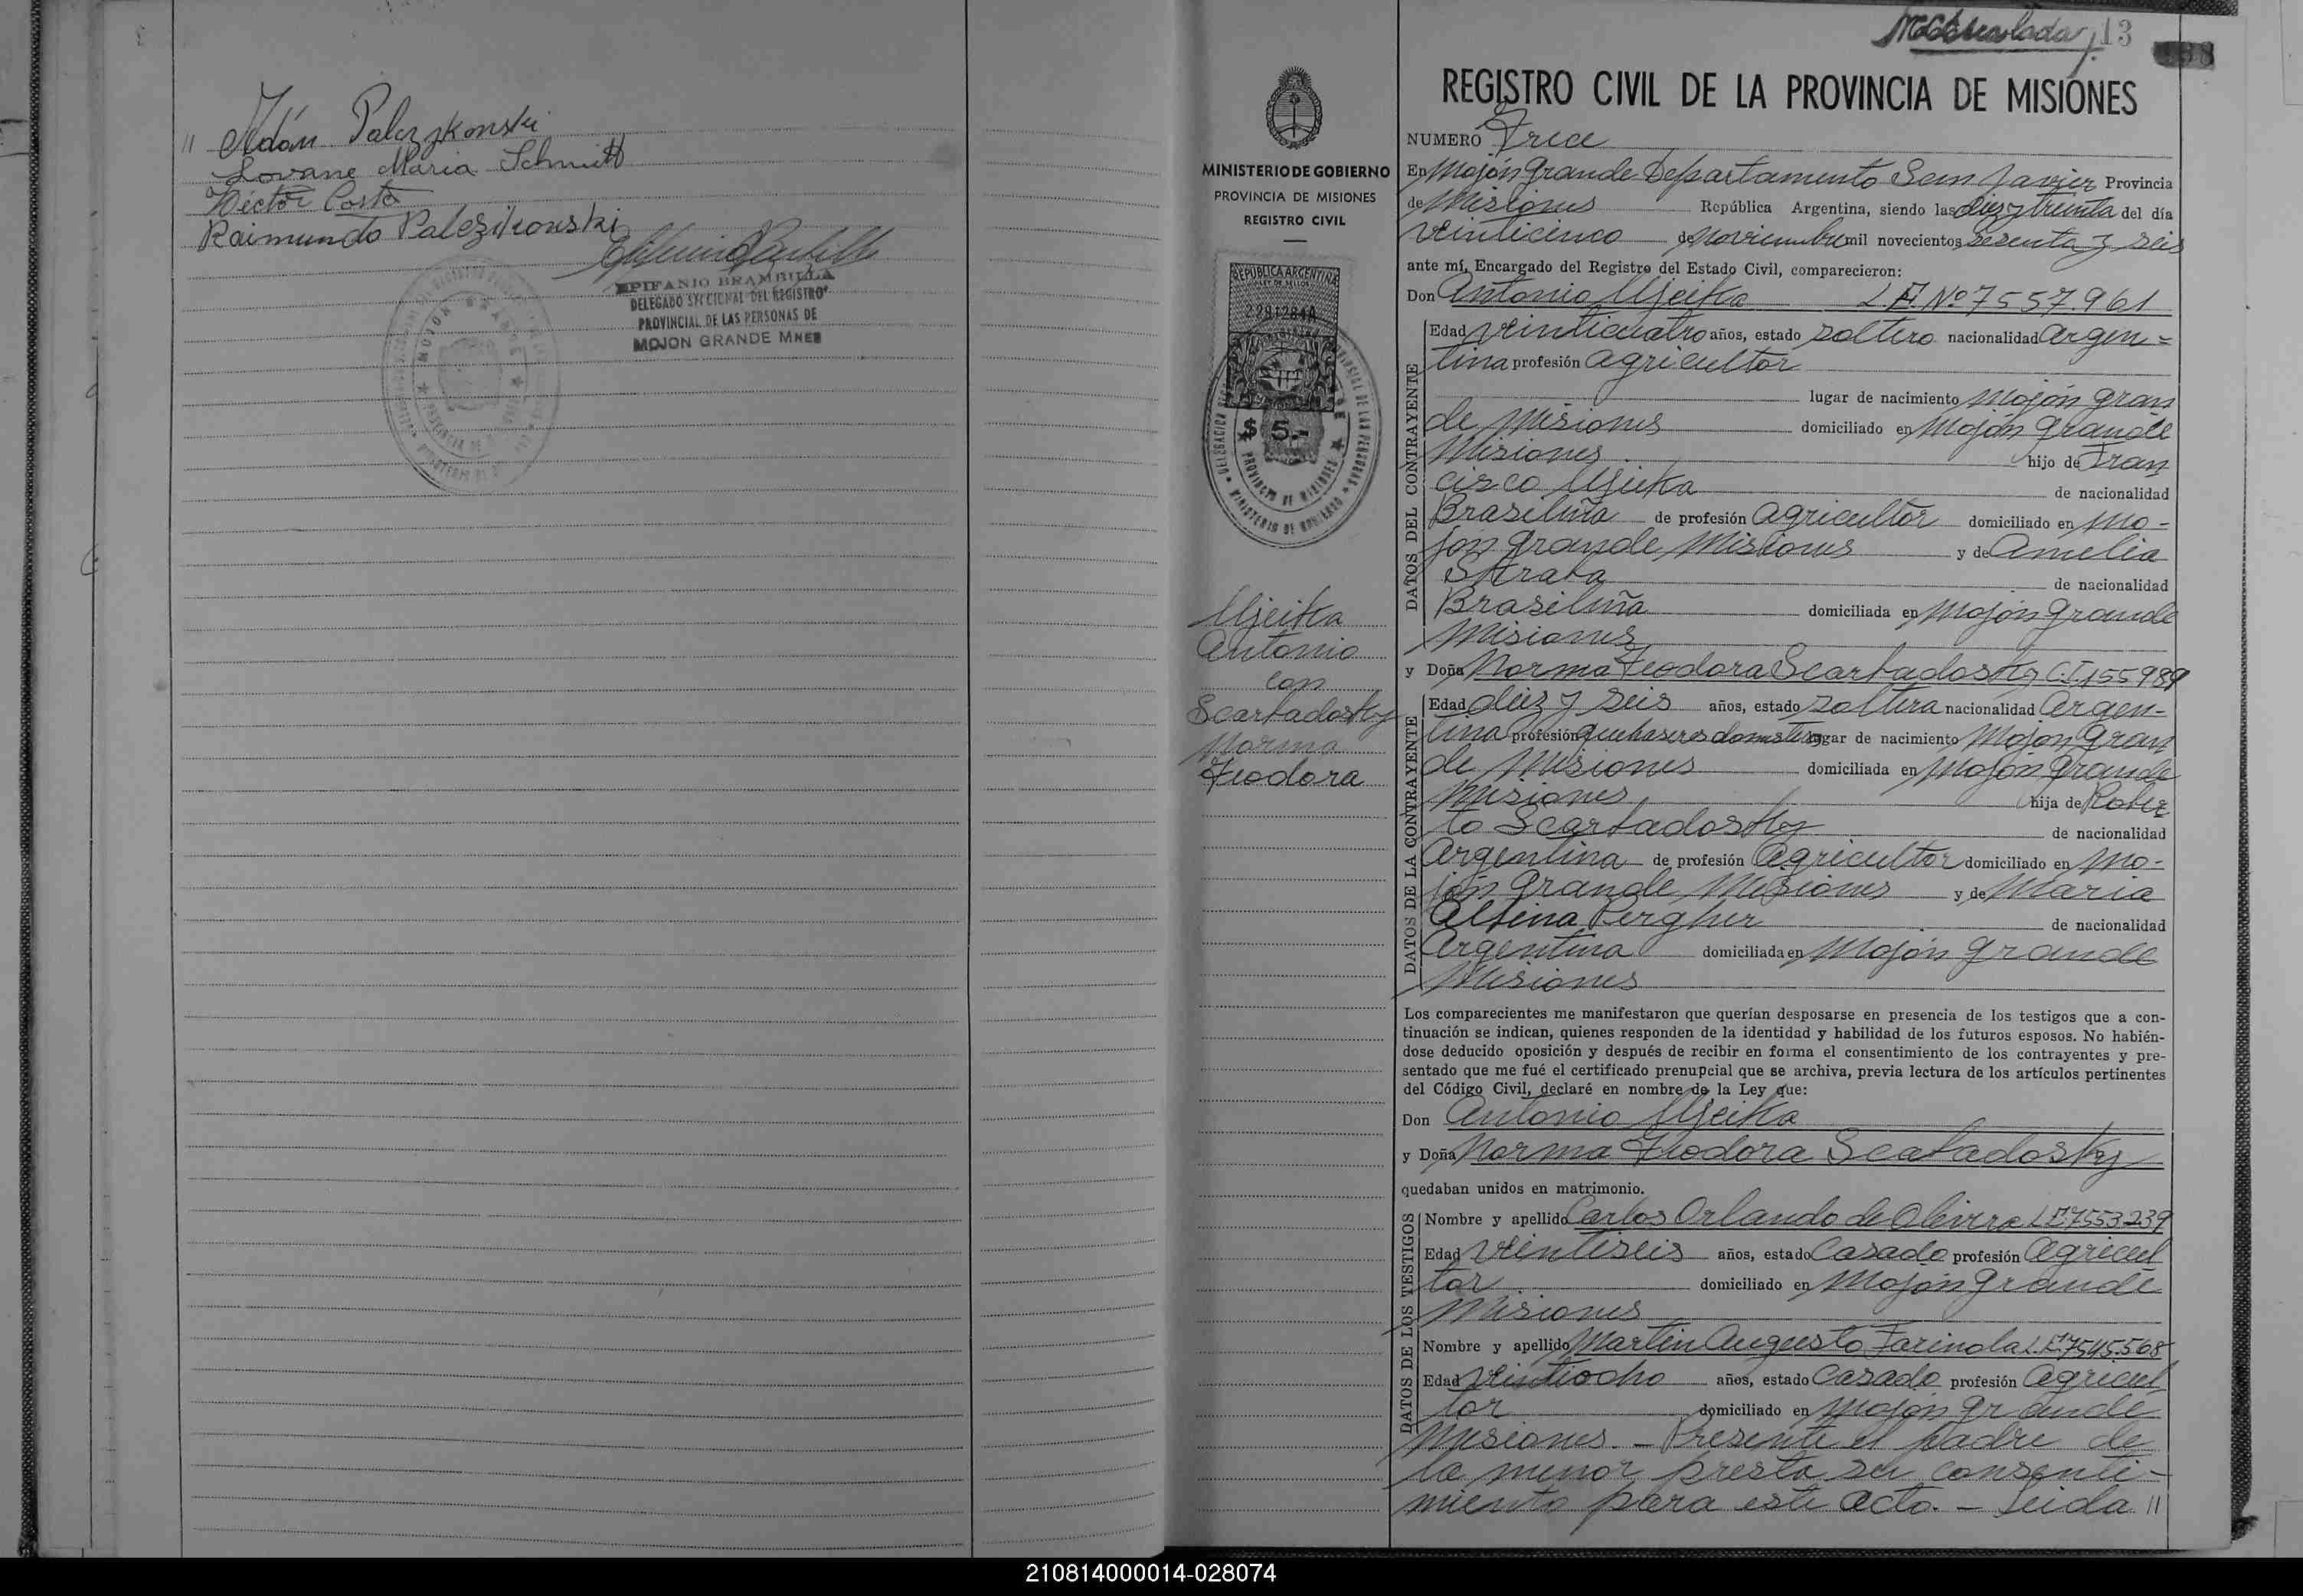 " Adán Palczykonski
Lovane Maria Schmitt
Héctor Costa
Raimundo Palczikonski
EPIFANIO BRAMBILLA
DELEGADO SECCIONAL DEL REGISTRO
PROVINCIAL DE LAS PERSONAS DE
MOJON GRANDE MNES
13
REGISTRO CIVIL DE LA PROVINCIA DE MISIONES
MINISTERIO DE GOBIERNO
PROVINCIA DE MISIONES
REGISTRO CIVIL
REPUBLICA ARGENTINA
LEY DE SELLOS
$ 5.-
Ujeika
Antonio
con
Scarfadosky
Norma
Feodora
NUMERO Trece
En Mojón Grande Departamento San Javier Provincia
de Misiones República Argentina, siendo las diez y treinta del día
veinticinco de noviembre mil novecientos sesenta y seis
ante mí, Encargado del Registro del Estado Civil, comparecieron:
Don Antonio Ujeika L.E. Nº 7557961
DATOS DEL CONTRAYENTE
Edad veinticuatro años, estado soltero nacionalidad argen=
tina profesión agricultor
lugar de nacimiento Mojón Gran
de Misiones domiciliado en Mojón Grande
Misiones hijo de Fran
cisco Ujeika de nacionalidad
Brasileña de profesión agricultor domiciliado en Mo-
jon Grande Misiones y de Amelia
de nacionalidad
Brasileña domiciliada en Mojón Grande
Misiones
y Doña Norma Feodora Scarfadosky C.I. 155989
DATOS DE LA CONTRAYENTE
Edad diez y seis años, estado soltera nacionalidad Argen-
tina profesión quehaseres domesticos lugar de nacimiento Mojon Gran
de Misiones domiciliada en Mojón Grande
Misiones hija de Rober
to Scarfadosky de nacionalidad
Argentina de profesión Agricultor domiciliado en Mo-
jón Grande Misiones y de Maria
de nacionalidad
Argentina domiciliada en Mojón Grande
Misiones
Los comparecientes me manifestaron que querían desposarse en presencia de los testigos que a con-
tinuación se indican, quienes responden de la identidad y habilidad de los futuros esposos. No habién-
dose deducido oposición y después de recibir en forma el consentimiento de los contrayentes y pre-
sentado que me fué el certificado prenupcial que se archiva, previa lectura de los artículos pertinentes
del Código Civil, declaré en nombre de la Ley que:
Don Antonio Ujeika
y Doña Norma Feodora Scafadosky
quedaban unidos en matrimonio.
DATOS DE LOS TESTIGOS
Nombre y apellido Carlos Orlando de Olivera L.E.7553239
Edad veintiseis años, estado Casado profesión Agricul
tor domiciliado en Mojón Grande
Misiones
Nombre y apellido Martin Augusto Farinola L.E.7545568
Edad veintiocho años, estado Casado profesión Agricul
tor domiciliado en Mojón Grande
Misiones. - Presente el padre de
la menor presta su consenti-
miento para este acto. - Leida "
210814000014-028074